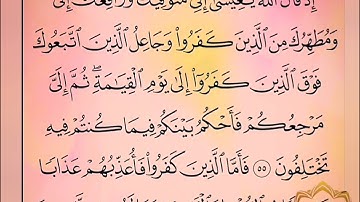 إِذْ قَالَ اللَّهُ يَا عِيسَىٰ إِنِّي مُتَوَفِّيكَ وَرَافِعُكَ إِلَيَّ
وَمُطَهِّرُكَ مِنَ الَّذِينَ كَفَرُوا وَجَاعِلُ الَّذِينَ اتَّبَعُوكَ
فَوْقَ الَّذِينَ كَفَرُوا إِلَىٰ يَوْمِ الْقِيَامَةِ ۖ ثُمَّ إِلَيَّ
مَرْجِعُكُمْ فَأَحْكُمُ بَيْنَكُمْ فِيمَا كُنتُمْ فِيهِ
تَخْتَلِفُونَ ٥٥ فَأَمَّا الَّذِينَ كَفَرُوا فَأُعَذِّبُهُمْ عَذَابًا